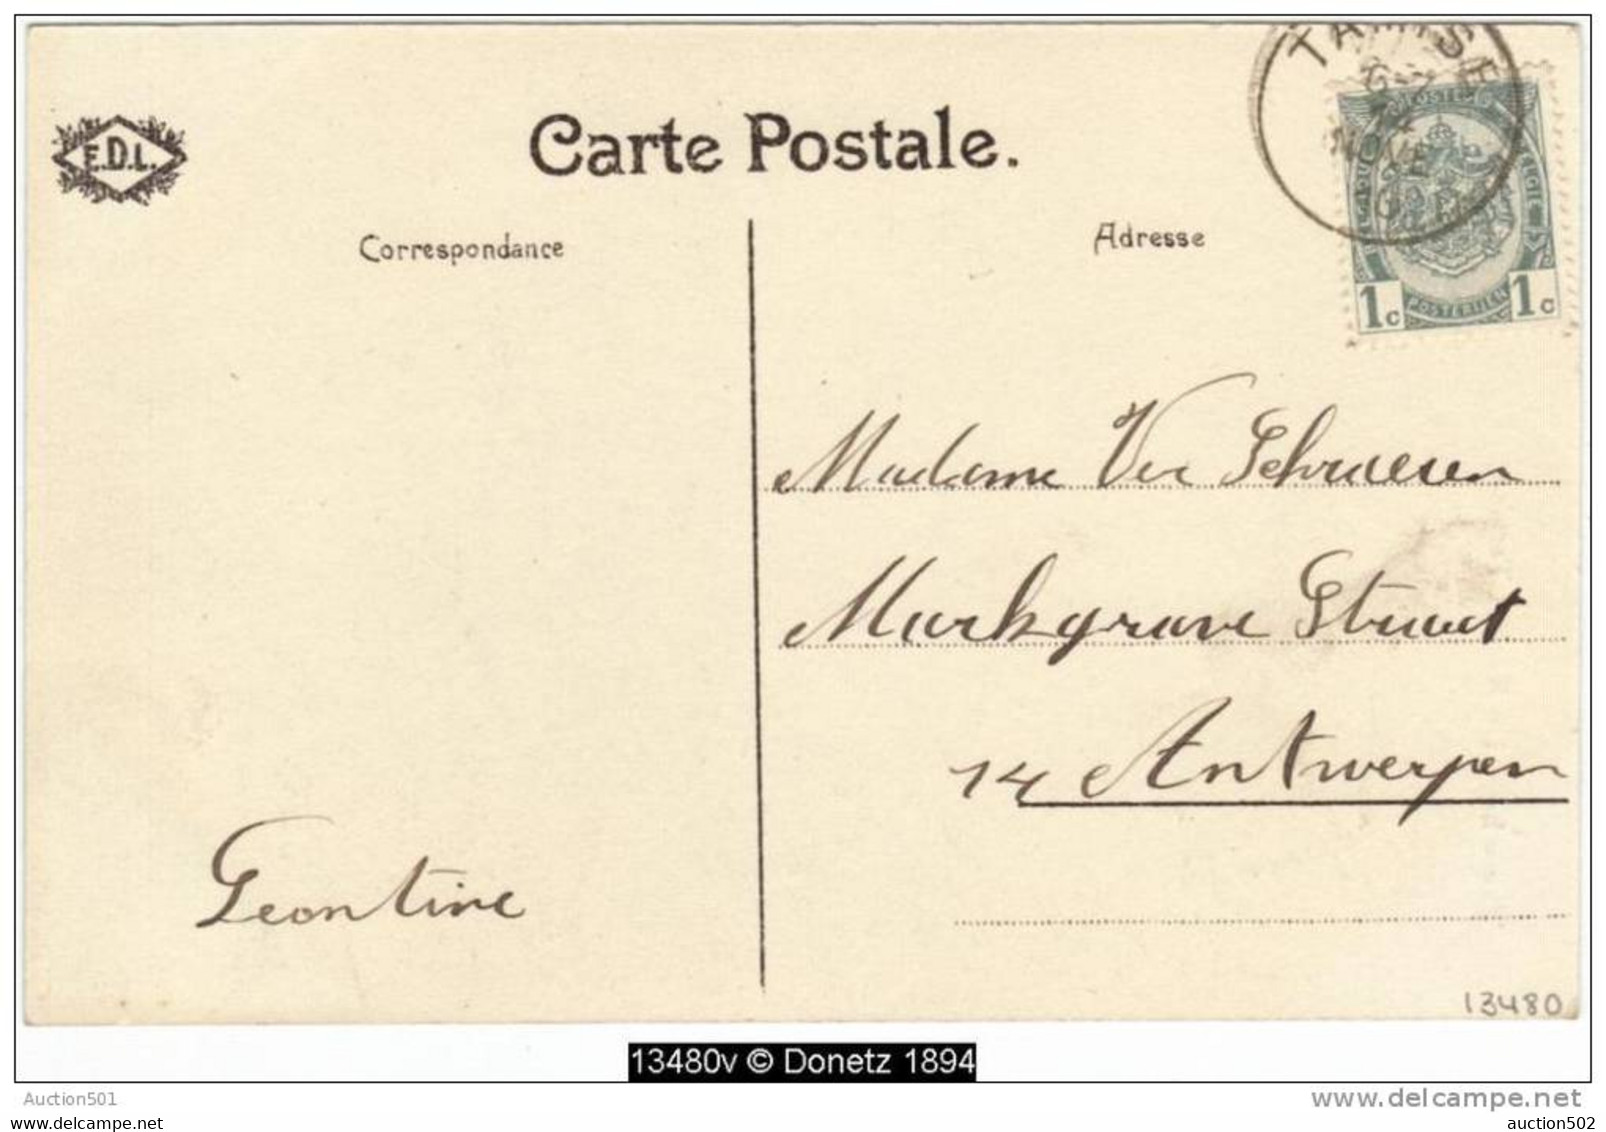 E.D.L.
Carte Postale.
Correspondance
Adresse
TAMISE
1c POSTERIJEN 1c
Madame Ver Schraesen
Markgrave Straat
14 Antwerpen
Leontine
13480
13480v © Donetz 1894
Auction501
www.delcampe.net
auction502